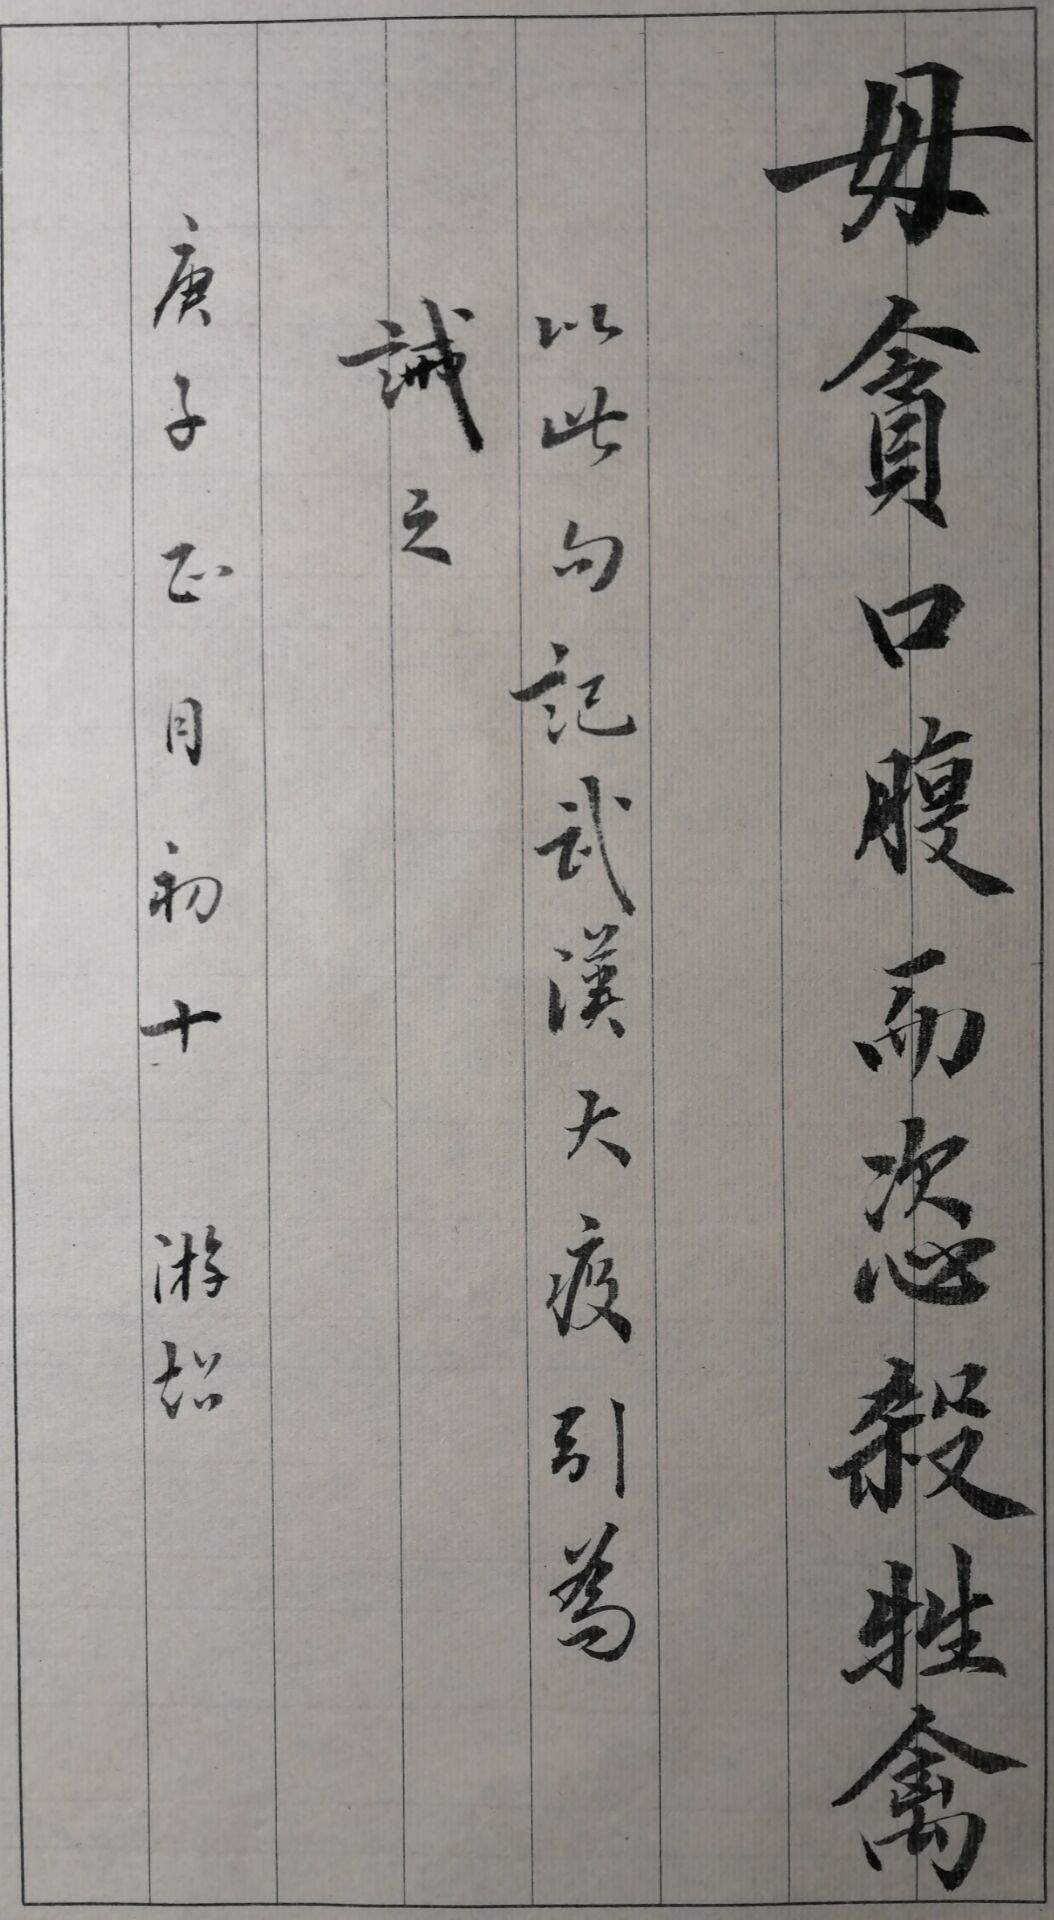 毋貪口腹而恣殺牲禽
以此句記武漢大疫引為
誡之
庚子正月初十 游超